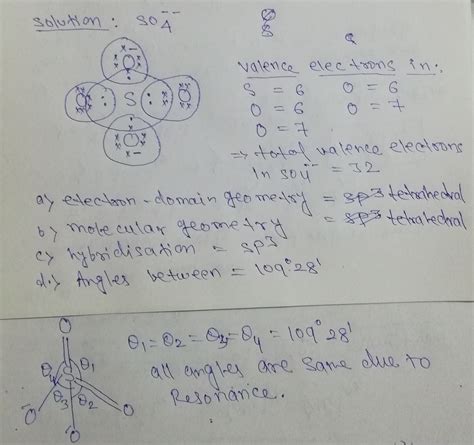 Solution: SO4--
S
Valence electrons in:
S = 6 O = 6
O = 6 O = 7
O = 7
⇒ total valence electrons
In SO4-- = 32
a) electron-domain geometry = sp3 tetrahedral
b) molecular geometry = sp3 tetrahedral
c) hybridisation = sp3
d.) Angles between = 109°28'
θ1 = θ2 = θ3 = θ4 = 109°28'
all angles are same due to
Resonance.
O
θ4 θ1
θ3 θ2
O O
O